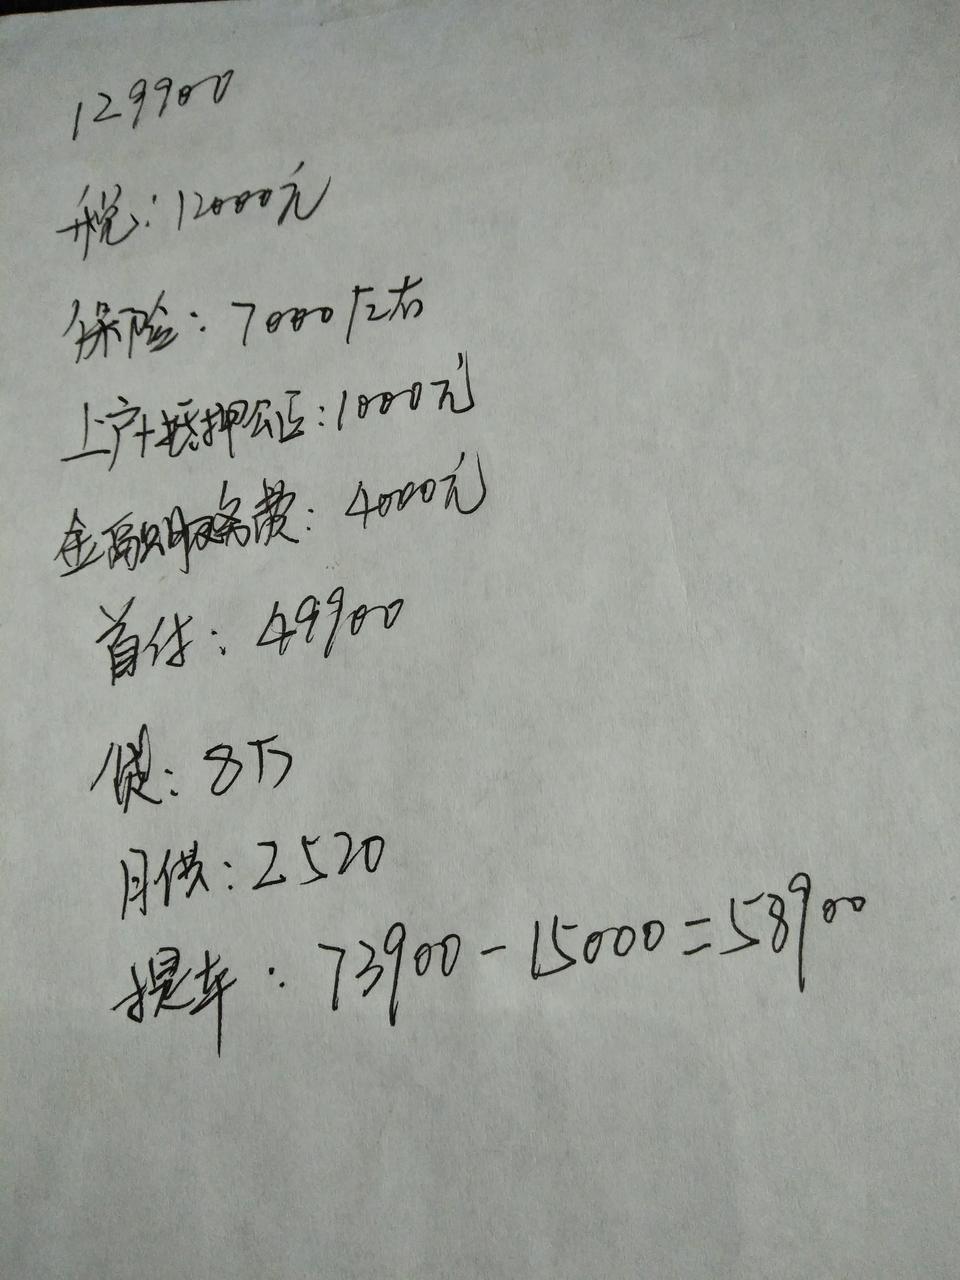 129900
税：12000元
保险：7000左右
上户+抵押公证：1000元
金融服务费：4000元
首付：49900
贷：8万
月供：2520
提车：73900-15000=58900